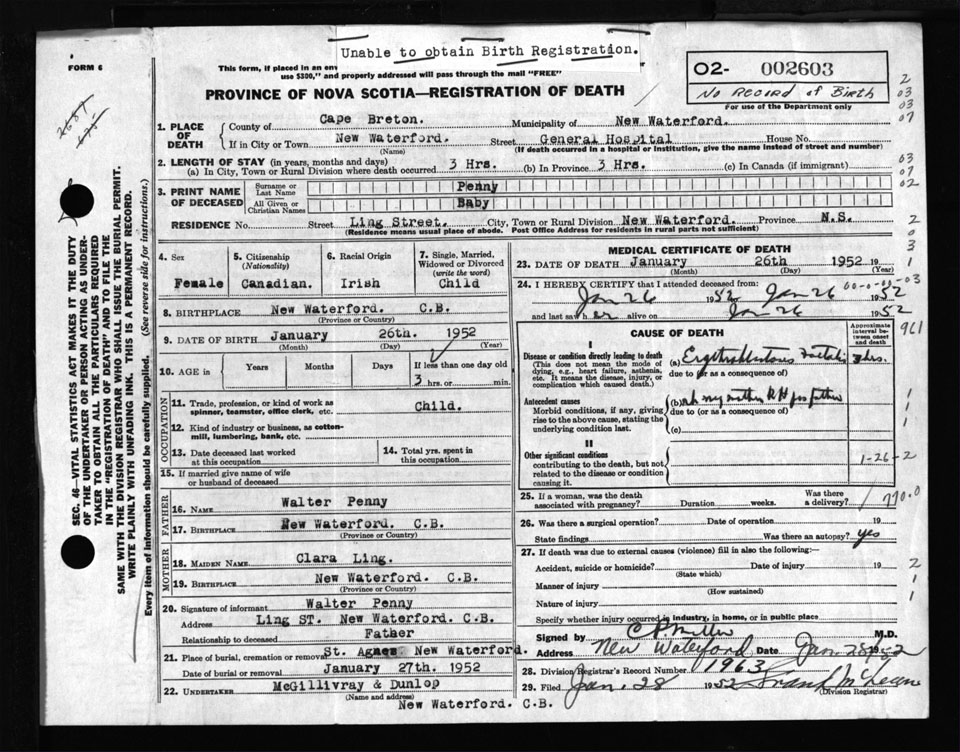 Unable to obtain Birth Registration.
FORM 6
This form, if placed in an env
use $300," and properly addressed will pass through the mail "FREE"
PROVINCE OF NOVA SCOTIA—REGISTRATION OF DEATH
O2- 002603
No Record of Birth
For use of the Department only
1. PLACE OF DEATH
County of Cape Breton. Municipality of New Waterford.
If in City or Town New Waterford. Street General Hospital House No.
(Name) (If death occurred in a hospital or institution, give the name instead of street and number)
2. LENGTH OF STAY (in years, months and days)
(a) In City, Town or Rural Division where death occurred 3 Hrs. (b) In Province 3 Hrs. (c) In Canada (if immigrant)
3. PRINT NAME OF DECEASED
Surname or Last Name Penny
All Given or Christian Names Baby
RESIDENCE No. Street Ling Street. City, Town or Rural Division New Waterford. Province N.S.
(Residence means usual place of abode. Post Office Address for residents in rural parts not sufficient)
4. Sex Female
5. Citizenship (Nationality) Canadian.
6. Racial Origin Irish
7. Single, Married, Widowed or Divorced (write the word) Child
8. BIRTHPLACE New Waterford. C.B.
(Province or Country)
9. DATE OF BIRTH January 26th. 1952
(Month) (Day) (Year)
10. AGE in Years Months Days If less than one day old
3 hrs. or min.
OCCUPATION
11. Trade, profession, or kind of work as spinner, teamster, office clerk, etc. Child.
12. Kind of industry or business, as cotton-mill, lumbering, bank, etc.
13. Date deceased last worked at this occupation
14. Total yrs. spent in this occupation
15. If married give name of wife or husband of deceased
FATHER
16. NAME Walter Penny
17. BIRTHPLACE New Waterford. C.B.
(Province or Country)
MOTHER
18. MAIDEN NAME Clara Ling.
19. BIRTHPLACE New Waterford. C.B.
(Province or Country)
20. Signature of informant Walter Penny
Address Ling ST. New Waterford. C.B.
Relationship to deceased Father
21. Place of burial, cremation or removal St. Agnes New Waterford.
Date of burial or removal January 27th. 1952
22. UNDERTAKER McGillivray & Dunlop
(Name and address)
New Waterford. C.B.
MEDICAL CERTIFICATE OF DEATH
23. DATE OF DEATH January 26th 1952 19
(Month) (Day) (Year)
24. I HEREBY CERTIFY that I attended deceased from:
Jan 26 1952 to Jan 26 1952
and last saw her alive on Jan 26 1952
CAUSE OF DEATH
Approximate interval between onset and death
I
Disease or condition directly leading to death
(This does not mean the mode of dying, e.g., heart failure, asthenia, etc. It means the disease, injury, or complication which caused death.)
(a) 3 hrs.
due to (or as a consequence of)
Antecedent causes
Morbid conditions, if any, giving rise to the above cause, stating the underlying condition last.
(b) mother RH father
due to (or as a consequence of)
(c)
II
Other significant conditions
contributing to the death, but not related to the disease or condition causing it.
1-26-2
25. If a woman, was the death associated with pregnancy? Duration weeks. Was there a delivery?
770.0
26. Was there a surgical operation? Date of operation 19
State findings Was there an autopsy? yes
27. If death was due to external causes (violence) fill in also the following:—
Accident, suicide or homicide? Date of injury 19
(State which)
Manner of injury
(How sustained)
Nature of injury
Specify whether injury occurred in industry, in home, or in public place
Signed by M.D.
Address New Waterford Date Jan. 28 1952
28. Division Registrar's Record Number 1963
29. Filed Jan. 28 1952 Frank McLean
(Division Registrar)
SEC. 46—VITAL STATISTICS ACT MAKES IT THE DUTY
OF THE UNDERTAKER OR PERSON ACTING AS UNDER-
TAKER TO OBTAIN ALL THE PARTICULARS REQUIRED
IN THE "REGISTRATION OF DEATH" AND TO FILE THE
SAME WITH THE DIVISION REGISTRAR WHO SHALL ISSUE THE BURIAL PERMIT.
WRITE PLAINLY WITH UNFADING INK. THIS IS A PERMANENT RECORD.
Every item of information should be carefully supplied. (See reverse side for instructions.)